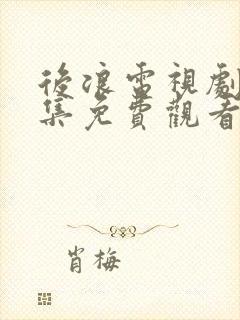 後浪電視劇
集免費觀看
肖梅